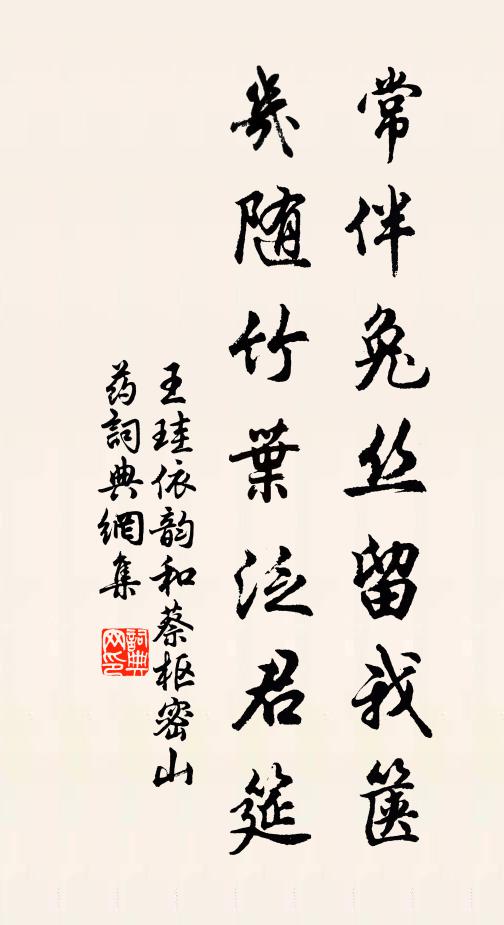 常伴兔丝留我箧
几随竹葉泛君筵
王珪依韵和蔡枢密山
药詞典網集
詞典网印